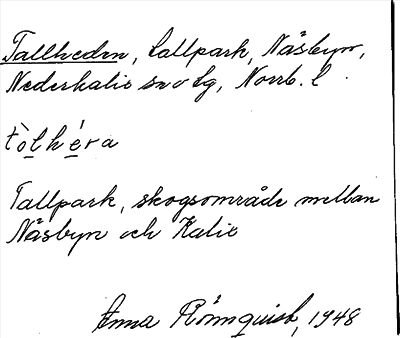 Tallheden, tallpark, Näsbyn,
Nederkalix sn o lg, Norrb. l.
tòlhéra
Tallpark, skogsområde mellan
Näsbyn och Kalix
Anna Rönnquist, 1948